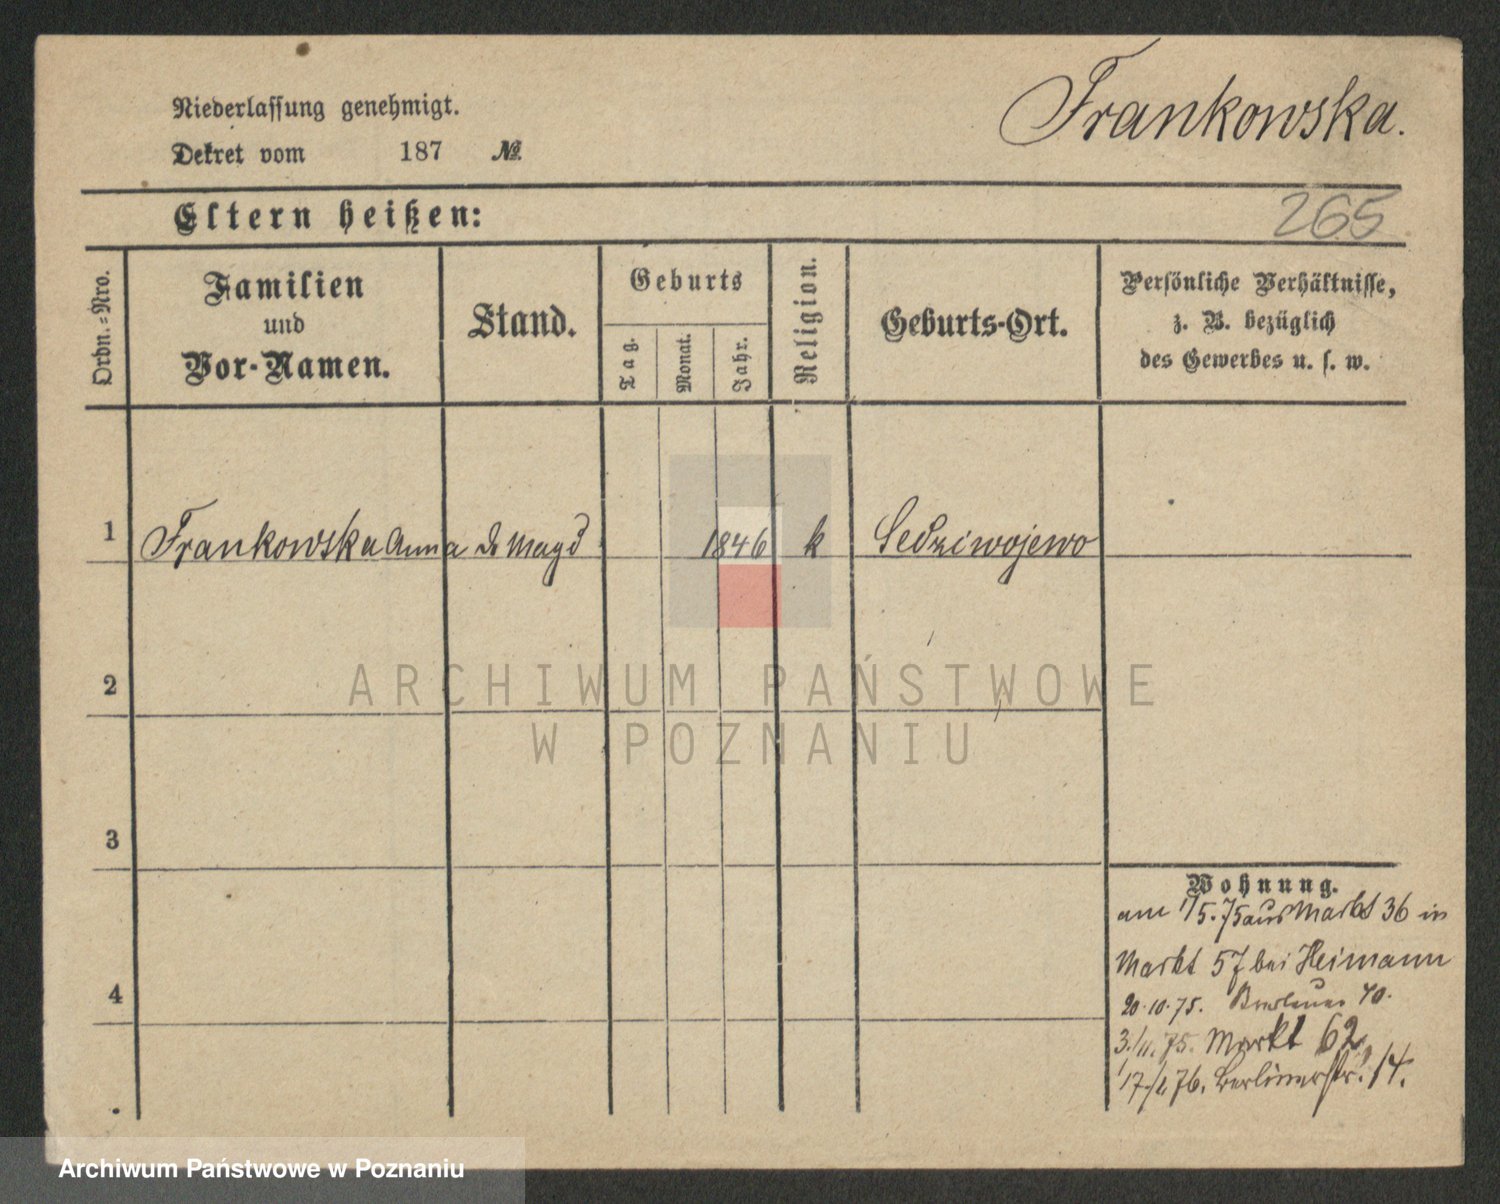 Frankowska.
Niederlassung genehmigt.
Dekret vom 187 №
265
Eltern heißen:
Ordn.-Nro.
Familien
und
Vor-Namen.
Stand.
Geburts
Tag.
Monat.
Jahr.
Religion.
Geburts-Ort.
Persönliche Verhältnisse,
z. B. bezüglich
des Gewerbes u. s. w.
1 Frankowska Anna d. Magd 1846 k Sedziwojewo
2
3
4
Wohnung.
am 1/5.75 aus Markt 36 in
Markt 57 bei Heimann
20.10.75. Breslauer 40.
3./11.75. Markt 62
17./1.76. Berlinerstr. 14.
ARCHIWUM PAŃSTWOWE
W POZNANIU
Archiwum Państwowe w Poznaniu